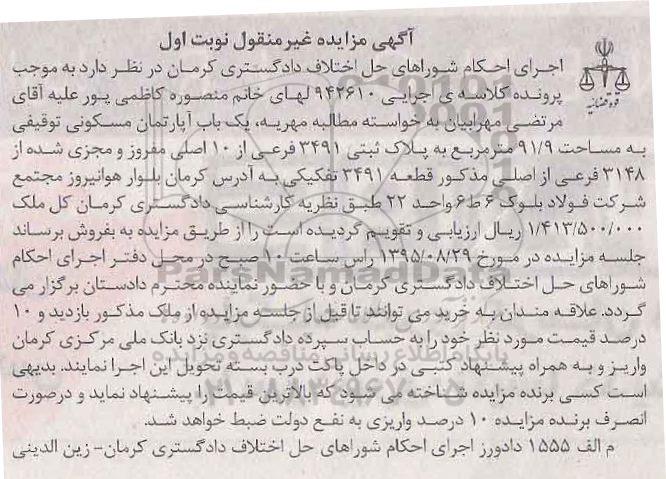 آگهی مزایده غیر منقول نوبت اول
اجرای احکام شوراهای حل اختلاف دادگستری کرمان در نظر دارد به موجب
پرونده کلاسه ی اجرایی ۹۴۲۶۱۰ لهای خانم منصوره کاظمی پور علیه آقای
مرتضی مهرابیان به خواسته مطالبه مهریه، یک باب آپارتمان مسکونی توقیفی
به مساحت ۹۱/۹ مترمربع به پلاک ثبتی ۳۴۹۱ فرعی از ۱۰ اصلی مفروز و مجزی شده از
۳۱۴۸ فرعی از اصلی مذکور قطعه ۳۴۹۱ تفکیکی به آدرس کرمان بلوار هوانیروز مجتمع
شرکت فولاد بلوک ۶ ط ۶ واحد ۲۲ طبق نظریه کارشناسی دادگستری کرمان کل ملک
۱/۴۱۳/۵۰۰/۰۰۰ ریال ارزیابی و تقویم گردیده است را از طریق مزایده به بفروش برساند
جلسه مزایده در مورخ ۱۳۹۵/۰۸/۲۹ راس ساعت ۱۰ صبح در محل دفتر اجرای احکام
شوراهای حل اختلاف دادگستری کرمان و با حضور نماینده محترم دادستان برگزار می
گردد. علاقه مندان به خرید می توانند تا قبل از جلسه مزایده از ملک مذکور بازدید و ۱۰
درصد قیمت مورد نظر خود را به حساب سپرده دادگستری نزد بانک ملی مرکزی کرمان
واریز و به همراه پیشنهاد کتبی در داخل پاکت درب بسته تحویل این اجرا نمایند. بدیهی
است کسی برنده مزایده شناخته می شود که بالاترین قیمت را پیشنهاد نماید و درصورت
انصرف برنده مزایده ۱۰ درصد واریزی به نفع دولت ضبط خواهد شد.
م الف ۱۵۵۵ دادورز اجرای احکام شوراهای حل اختلاف دادگستری کرمان- زین الدینی
قوه قضائیه
ParsNamadData
پایگاه اطلاع رسانی مناقصه و مزایده